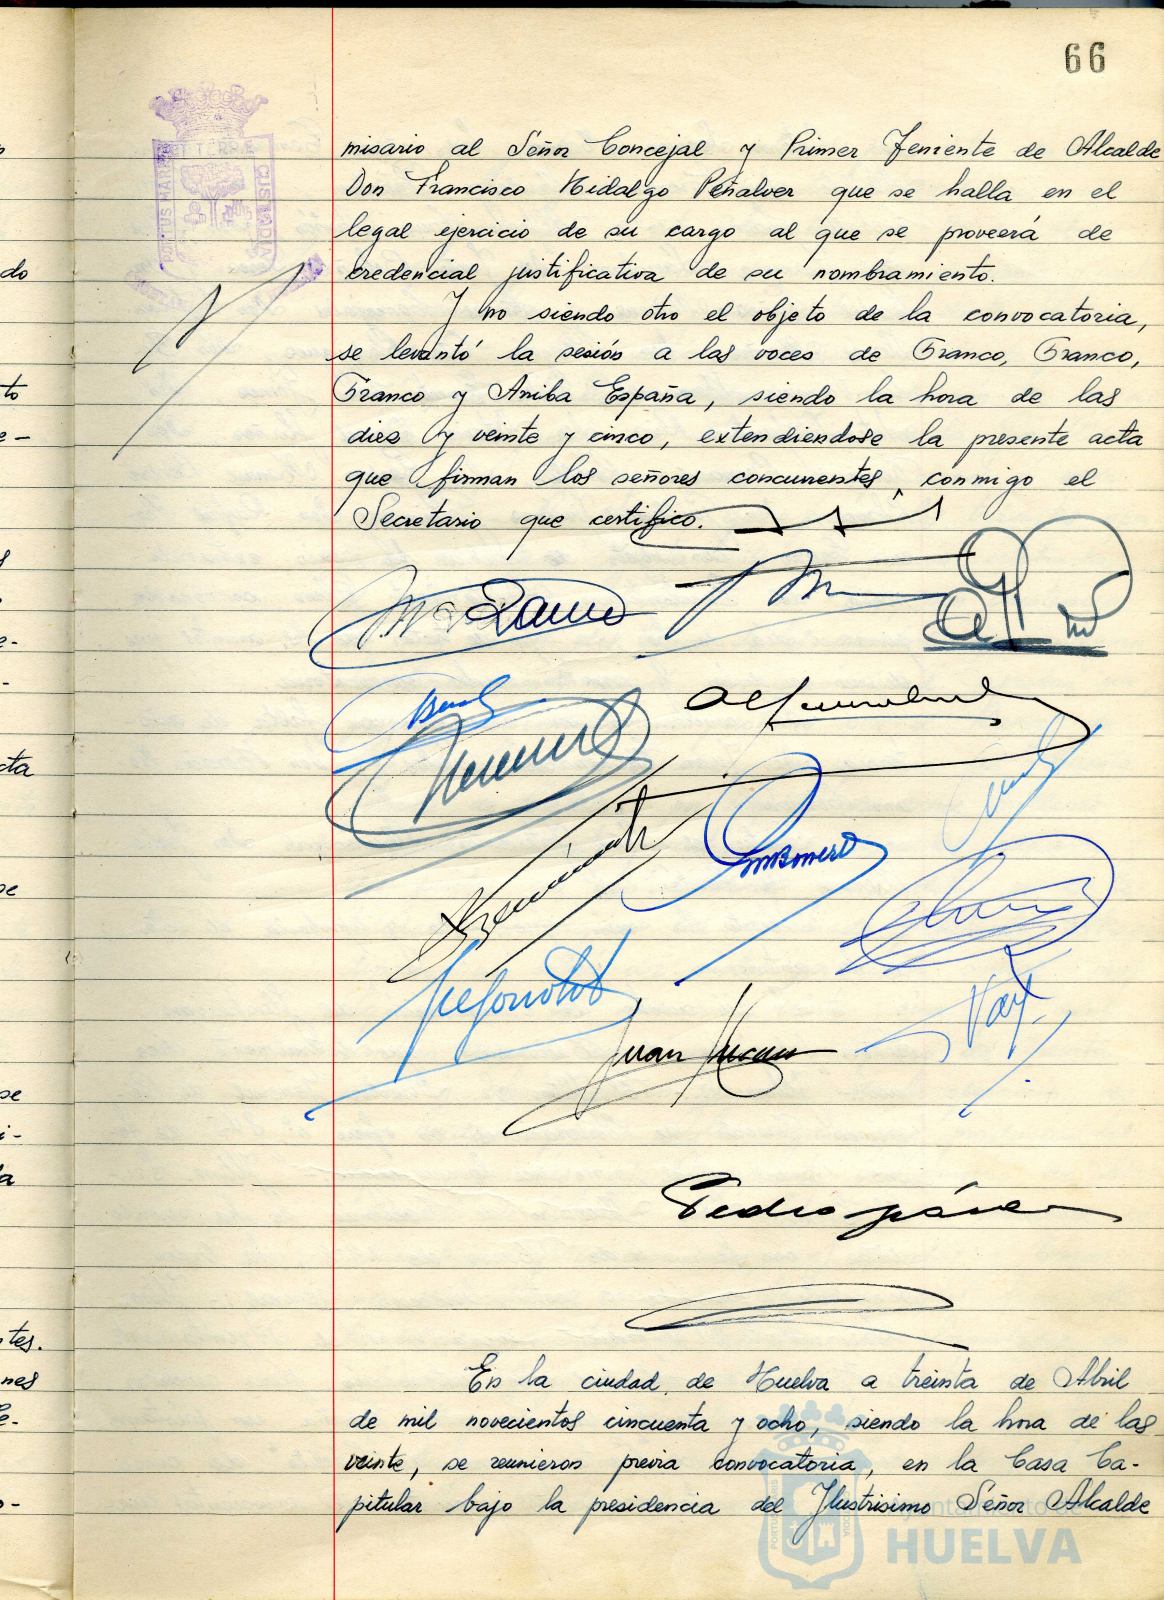 66
misario al Señor Concejal y Primer Teniente de Alcalde
Don Francisco Hidalgo Peñalver que se halla en el
legal ejercicio de su cargo al que se proveerá de
credencial justificativa de su nombramiento.
Y no siendo otro el objeto de la convocatoria,
se levantó la sesión a las voces de Franco, Franco,
Franco y Arriba España, siendo la hora de las
diez y veinte y cinco, extendiendose la presente acta
que firman los señores concurrentes, conmigo el
Secretario que certifico.
Juan
Pedro
En la ciudad de Huelva a treinta de Abril
de mil novecientos cincuenta y ocho, siendo la hora de las
veinte, se reunieron previa convocatoria, en la Casa Ca-
pitular bajo la presidencia del Ilustrisimo Señor Alcalde
Ayuntamiento de
HUELVA
do
to
e-
cta
se
i-
la
tes.
nes